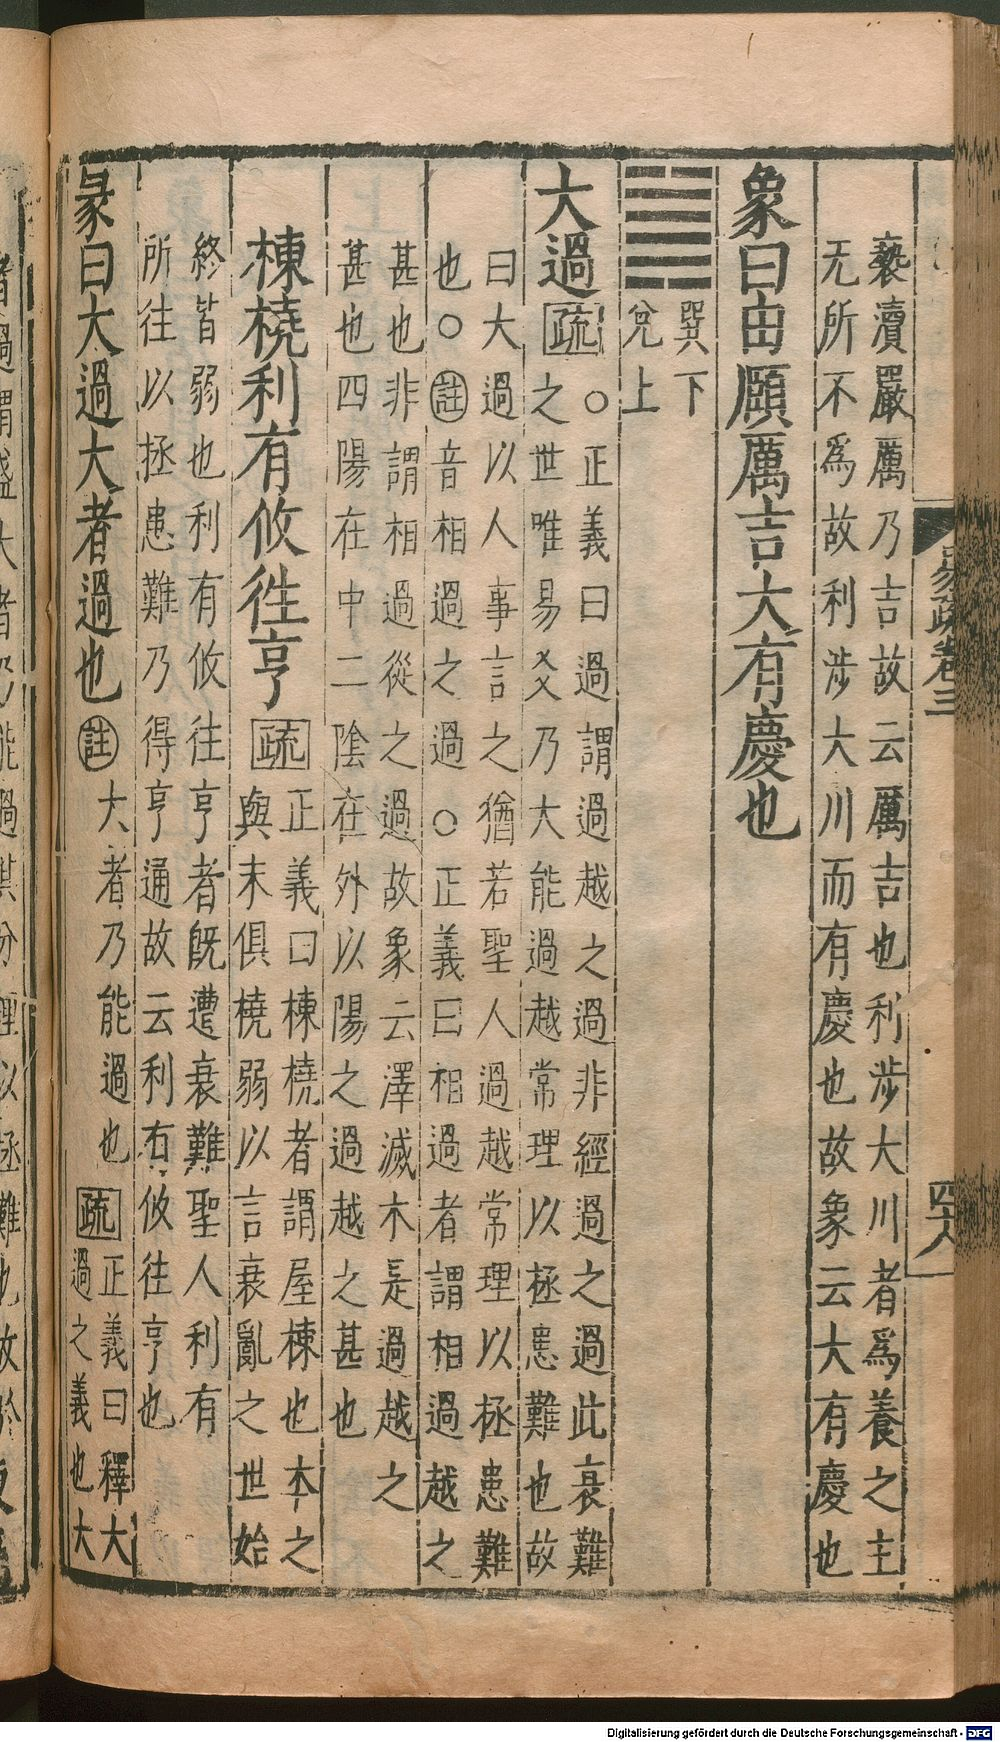 褻瀆嚴厲乃吉故云厲吉也利涉大川者爲養之主
无所不爲故利涉大川而有慶也故象云大有慶也
象曰由頤厲吉大有慶也
巽下
兌上
大過疏
○正義曰過謂過越之過非經過之過此衰難
之世唯易爻乃大能過越常理以拯患難也故
曰大過以人事言之猶若聖人過越常理以拯患難
也○註音相過之過○正義曰相過者謂相過越之
甚也非謂相過從之過故象云澤滅木是過越之
甚也四陽在中二陰在外以陽之過越之甚也
棟橈利有攸往亨疏
正義曰棟橈者謂屋棟也本之
與末俱橈弱以言衰亂之世始
終皆弱也利有攸往亨者既遭衰難聖人利有
所往以拯患難乃得亨通故云利有攸往亨也
彖曰大過大者過也註大者乃能過也疏
正義曰釋大
過之義也大
易疏卷三
四八
Digitalisierung gefördert durch die Deutsche Forschungsgemeinschaft - DFG